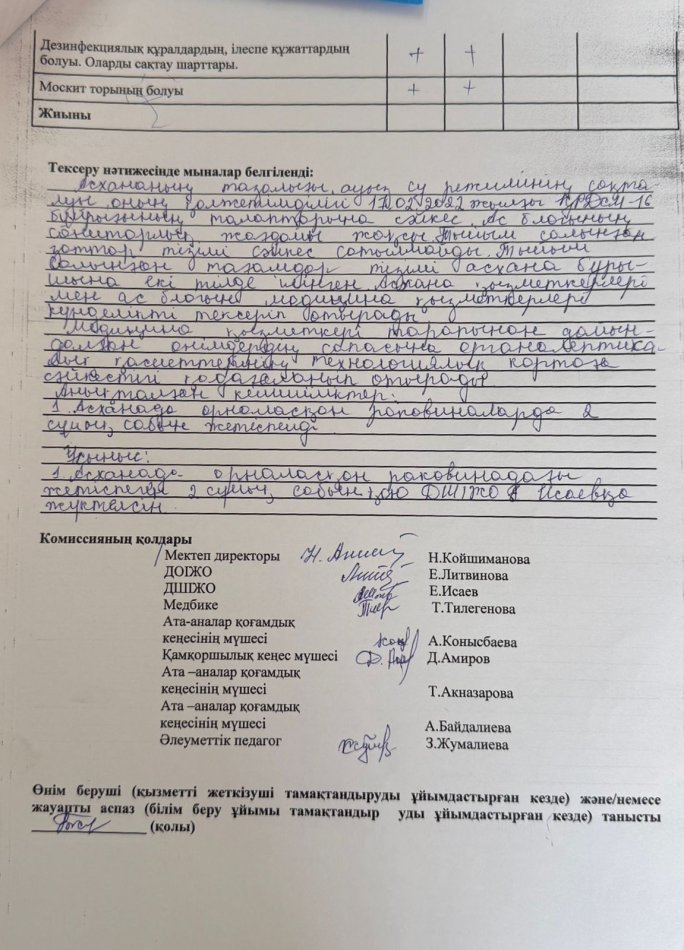 Дезинфекциялық құралдардың, ілеспе құжаттардың
болуы. Оларды сақтау шарттары. + +
Москит торының болуы + +
Жиыны
Тексеру нәтижесінде мыналар белгіленді:
Асхананың тазалығы, ауыз су режимінің сақта-
луы оның қолжетімділігі 17.02.2022 жылғы ҚР ДСМ-16
бұйрығының талаптарына сәйкес. Ас блогының
санитарлық жағдайы жақсы. Тыйым салынған
заттар тізімі сәйкес сатылмайды. Тыйым
салынған тағамдар тізімі асхана бұры-
шына екі тілде ілінген. Асхана қызметкерлері
мен ас блогын медицина қызметкерлері
күнделікті тексеріп отырады.
Медицина қызметкері тарапынан дайын-
далған өнімдердің сапасына органолептика-
лық қасиеттерінің технологиялық картаға
сәйкестігі қадағаланып отырады.
Анықталған кемшіліктер:
1. Асханада орналасқан раковиналарда 2
сұйық сабын жетіспейді.
Ұсыныс:
1. Асханада орналасқан раковинадағы
жетіспеген 2 сұйық сабын қою ДШІЖО Е Исаевқа
жүктелсін.
Комиссияның қолдары
Мектеп директоры Н.Койшиманова
ДОІЖО Е.Литвинова
ДШІЖО Е.Исаев
Медбике Т.Тилегенова
Ата-аналар қоғамдық
кеңесінің мүшесі А.Конысбаева
Қамқоршылық кеңес мүшесі Д.Амиров
Ата –аналар қоғамдық
кеңесінің мүшесі Т.Акназарова
Ата –аналар қоғамдық
кеңесінің мүшесі А.Байдалиева
Әлеуметтік педагог З.Жумалиева
Өнім беруші (қызметті жеткізуші тамақтандыруды ұйымдастырған кезде) және/немесе
жауапты аспаз (білім беру ұйымы тамақтандыр уды ұйымдастырған кезде) танысты
(қолы)